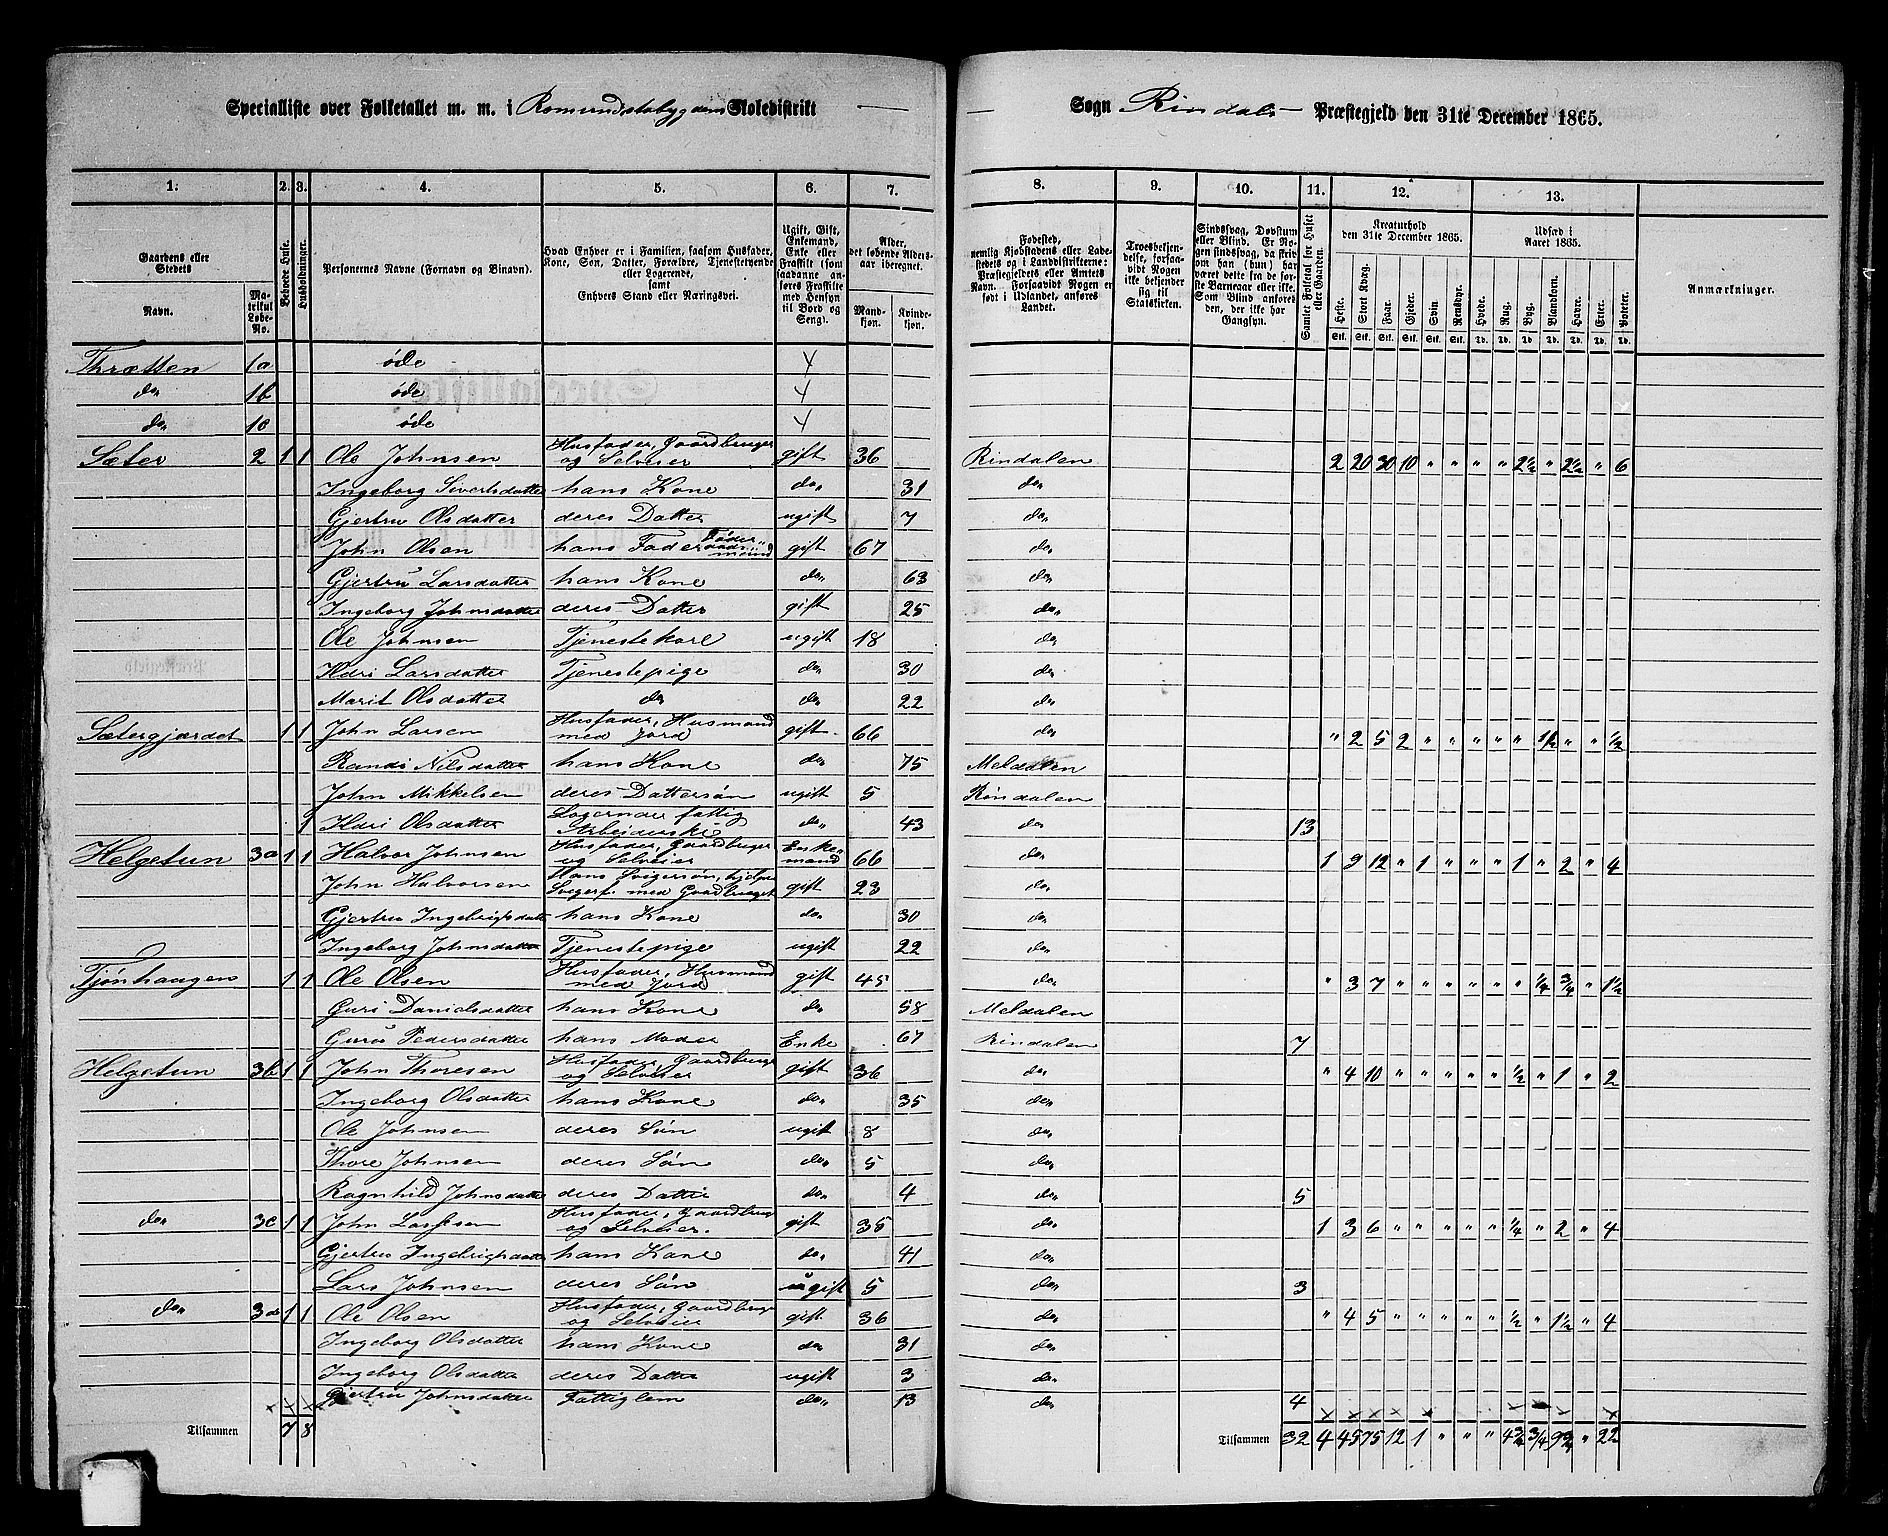 Specialliste over Folketallet m. m. i Romundstabygdens Skoledistrikt
Sogn Rindals Præstegjeld den 31te December 1865.
1. 2. 3. 4. 5. 6. 7. 8. 9. 10. 11. 12. 13.
Gaardens eller Stedets
Navn.
Matrikul Løbe-No.
Beboede Huse.
Husholdninger.
Personernes Navne (Fornavn og Binavn).
Hvad Enhver er i Familien, saasom Husfader, Kone, Søn, Datter, Forældre, Tjenestetyende eller Logerende, samt Enhvers Stand eller Næringsvei.
Ugift, Gift, Enkemand, Enke eller Fraskilt
Alder, det løbende Aldersaar iberegnet.
Mandkjøn. Kvindekjøn.
Fødested,
Kreaturhold den 31te December 1865.
Udsæd i Aaret 1865.
Anmærkninger.
Heste. Stort Kvæg. Faar. Gjeder. Svin Rensdyr. Hvede. Rug. Byg. Blandkorn. Havre. Erter. Poteter.
Thrætten 1a øde
do 1b øde
do 1c øde
Sæter 2 1 1 Ole Johnsen Husfader, Gaardbruger og Selveier gift 36 Rindalen 2 20 30 10 " " " " 2½ " 2½ " 6
Ingeborg Sivertsdatter hans Kone do 31 do
Gjertru Olsdatter deres Datter ugift 7 do
John Olsen hans Fader Føderaadsmand gift 67 do
Gjertru Larsdatter hans Kone do 63 do
Ingeborg Johnsdatter deres Datter gift 25 do
Ole Johnsen Tjenestekarl ugift 18 do
Ildri Larsdatter Tjenestepige do 30 do
Marit Olsdatter do do 22 do
Sætergjærdet 1 1 John Larsen Husfader, Husmand med Jord gift 66 do " 2 5 2 " " " " " 1½ " " ½
Randi Nilsdatter hans Kone do 75 Meldalen
John Mikkelsen deres Dattersøn ugift 5 Rindalen
1 Ildri Olsdatter Logerende fattig do 43 do 13
Helgetun 3a 1 1 Halvor Johnsen Husfader, Gaardbruger og Selveier Enkemand 66 do 1 9 12 " 1 " " " 1 " 2 " 4
John Halvorsen Hans Svigersøn, hjelper Svigerf. med Gaardbruget gift 23 do
Gjertru Ingebrigtsdatter hans Kone do 30 do
Ingeborg Johnsdatter Tjenestepige ugift 22 do
Tjønhaugen 1 1 Ole Olsen Husfader, Husmand med Jord gift 45 do " 3 7 " " " " " " ¼ ¾ " 1½
Guri Danielsdatter hans Kone do 58 Meldalen
Guru Pedersdatter hans Moder Enke 67 Rindalen 7
Helgetun 3b 1 1 John Thoresen Husfader, Gaardbruger og Selveier gift 36 do " 4 10 " " " " " ½ " 1 " 2
Ingeborg Olsdatter hans Kone do 35 do
Ole Johnsen deres Søn ugift 8 do
Thore Johnsen deres Søn do 5 do
Ragnhild Johnsdatter deres Datter do 4 do 5
do 3c 1 1 John Larssen Husfader, Gaardbruger og Selveier. gift 35 do 1 3 6 " " " " " ¼ " 2 " 4
Gjertru Ingebrigtsdatter hans Kone do 41 do
Lars Johnsen deres Søn ugift 5 do 3
do 3d 1 1 Ole Olsen Husfader, Gaardbruger og Selveier gift 36 do " 4 5 " " " " " ½ " 1½ " 4
Ingeborg Olsdatter hans Kone do 31 do
Ingeborg Olsdatter deres Datter ugift 3 do
Gjertru Johnsdatter Fattiglem do 13 do 4
Tilsammen 7 8 Tilsammen 32 4 45 75 12 1 " " " 4¾ ¾ 9¾ " 22